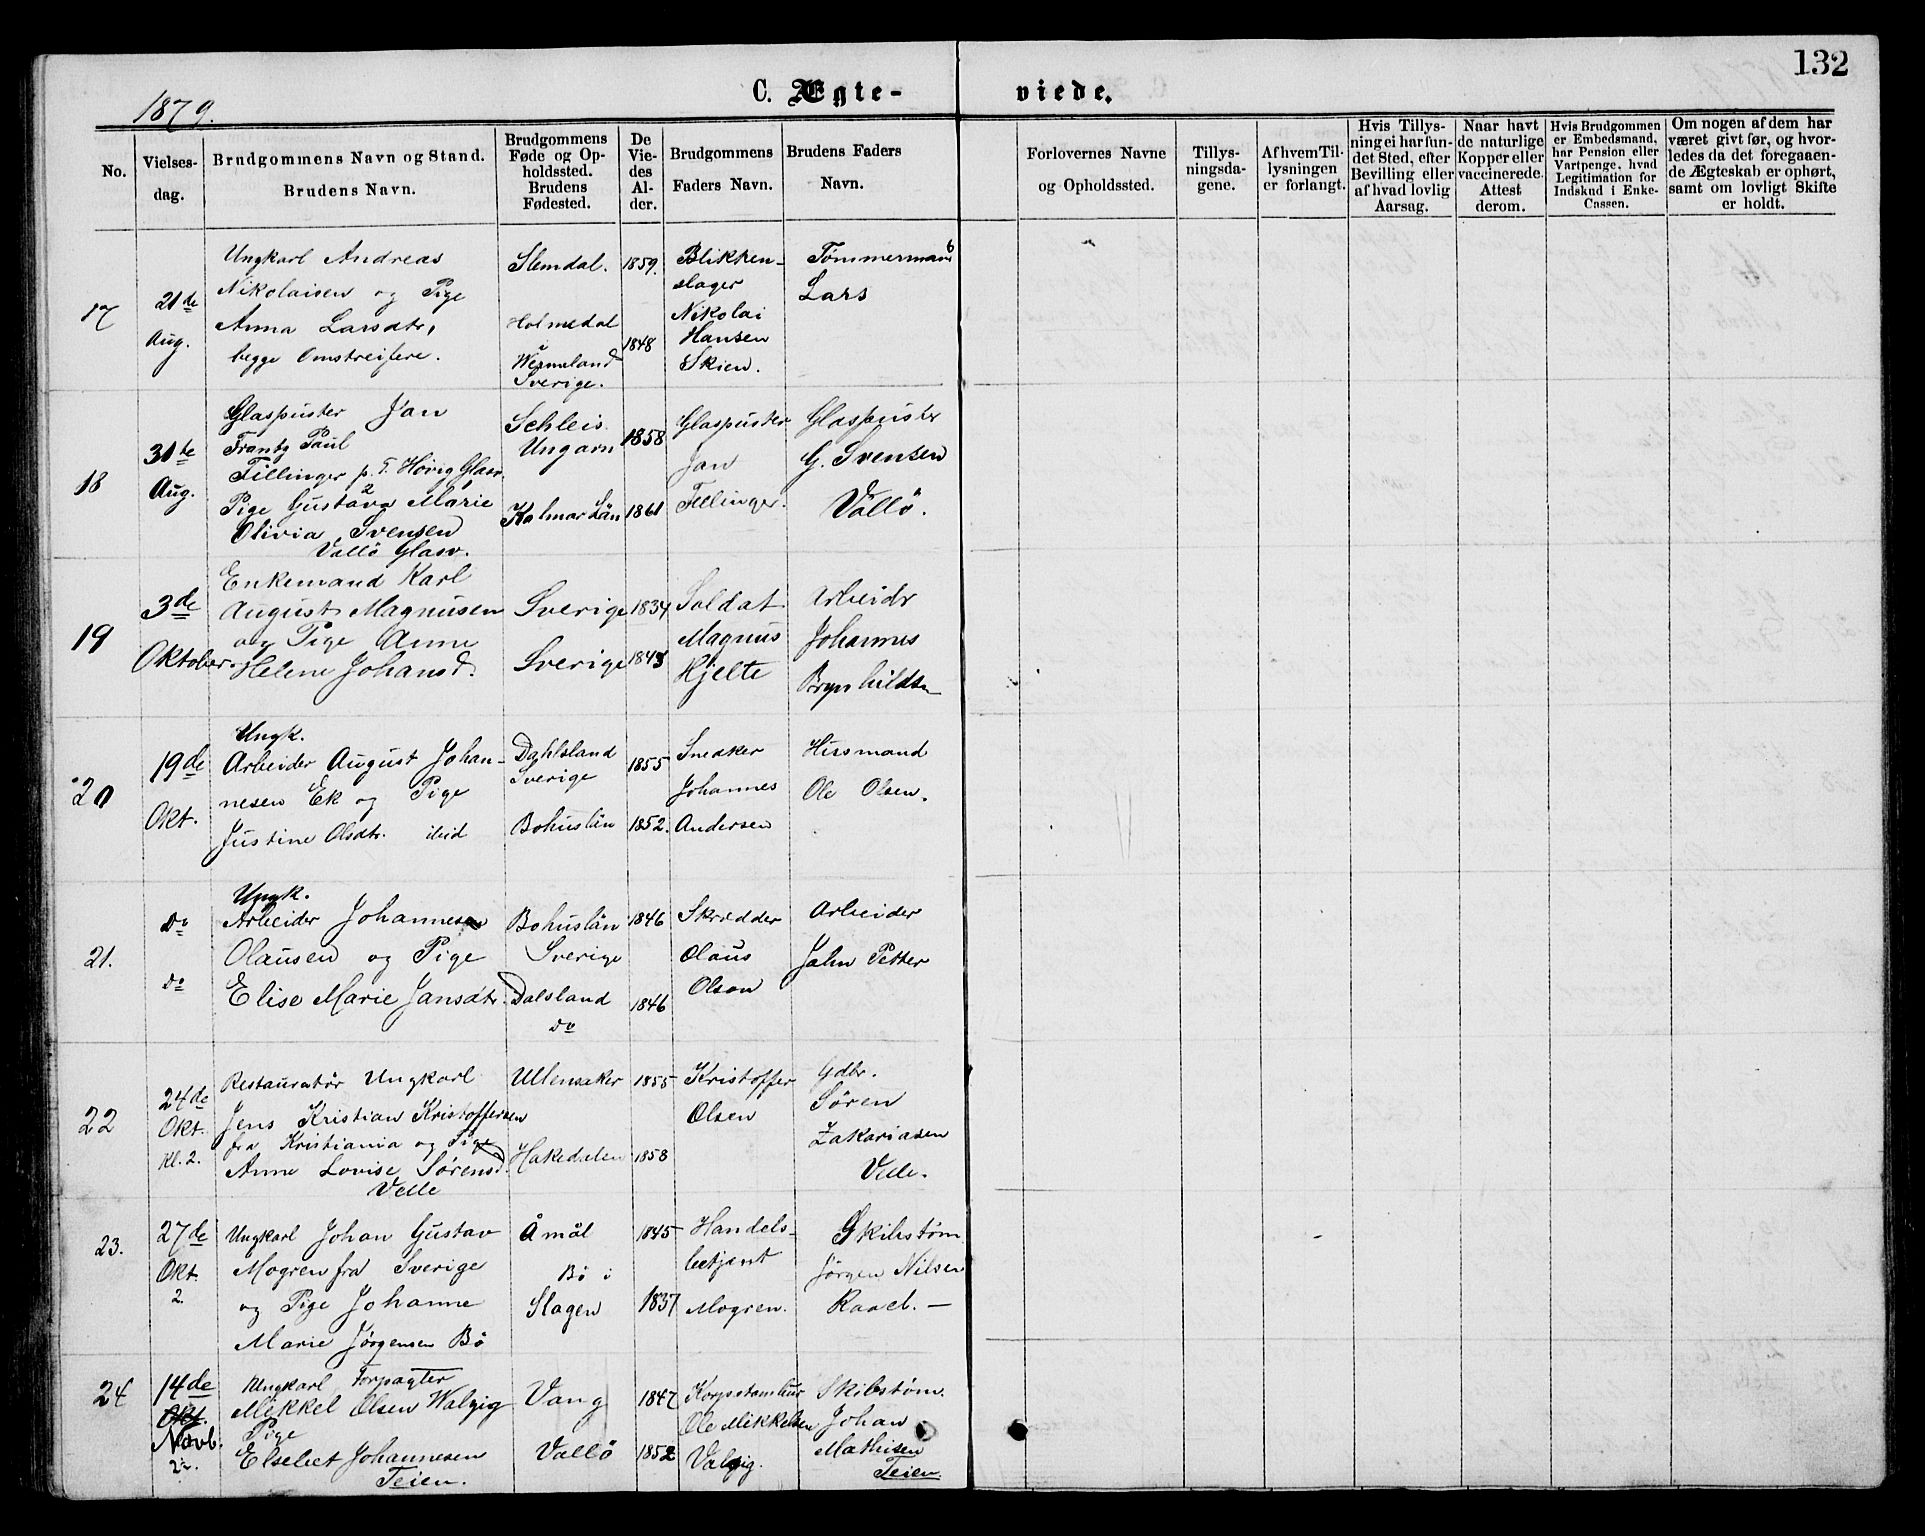 132
1879.
C. Ægte-
viede.
No.
Vielses-
dag.
Brudgommens Navn og Stand.
Brudens Navn.
Brudgommens
Føde og Op-
holdssted.
Brudens
Fødested.
De
Vie-
des
Al-
der.
Brudgommens
Faders Navn.
Brudens Faders
Navn.
Forlovernes Navne
og Opholdssted.
Tillys-
ningsda-
gene.
Af hvem Til-
lysningen
er forlangt.
Hvis Tillys-
ning ei har fun-
det Sted, efter
Bevilling eller
af hvad lovlig
Aarsag.
Naar havt
de naturlige
Kopper eller
vaccinerede.
Attest
derom.
Hvis Brudgommen
er Embedsmand,
har Pension eller
Vartpenge, hvad
Legitimation for
Indskud i Enke-
Cassen.
Om nogen af dem har
været givt før, og hvor-
ledes da det foregaaen-
de Ægteskab er ophørt,
samt om lovligt Skifte
er holdt.
17
21de
Aug.
Ungkarl Andreas
Nikolaisen og Pige
Anna Larsdtr,
begge Omstreifere.
Slemdal.
Holmedal
Wermeland
Sverige.
1859.
1848
Blikken-
slager
Nikolai
Hansen
Skien.
Tømmermand
Lars
18
31te
Aug.
Glaspuster Jan
Frantz Paul
Fillinger p. T. Høvig Glasv.
Pige Gustava Marie
Olivia Svensen
Vallö Glasv.
Schleis
Ungarn
Kalmar Län
1858
1861
Glaspuster
Jan
Fillinger.
Glaspuster
G. Svensen
Vallö.
19
3de
Oktober
Enkemand Karl
August Magnusen
og Pige Anne
Helene Johansd.
Sverige
Sverige
1834
1843
Soldat
Magnus
Hjelte
Arbeidr
Johannes
Brynhildsn
20
19de
Okt.
Ungk.
Arbeider August Johan-
nesen Ek og Pige
Justine Olsdtr. ibid
Dahlsland
Sverige
Bohuslän
1855
1852.
Snedker
Johannes
Andersen
Husmand
Ole Olsen.
21.
Do
Do
Ungk.
Arbeider Johannes
Olausen og Pige
Elise Marie Jansdtr.
Bohuslän
Sverige
Dalsland
Do
1846
1846
Skrædder
Olaus
Olson
Arbeider
Jahn Petter
22
24de
Okt.
Kl. 2.
Restauratör Ungkarl
Jens Kristian Kristoffersen
fra Kristiania og Pige
Anne Lovise Sørensd.
Velle
Ullensaker
Hakedalen
1855
1858
Kristoffer
Olsen
Gdbr.
Søren
Zakariasen
Velle.
23.
27de
Okt.
2.
Ungkarl Johan Gustav
Mogren fra Sverige
og Pige Johanne
Marie Jørgensen Bö
Åmål
Bö i
Slagen
1845
1837
Handels-
betjent
Mogren.
Skibstøm
Jørgen Nilsen
24
14de
Okt.
Novb.
2.
Ungkarl Forpagter
Mikkel Olsen Walgig
Pige
Elsebet Johannesen
Teien.
Vang
Vallö
1847
1852
Korpstambur
Ole Mikkelsen
Valgig.
Skibstøm.
Johan
Mathisen
Teien.